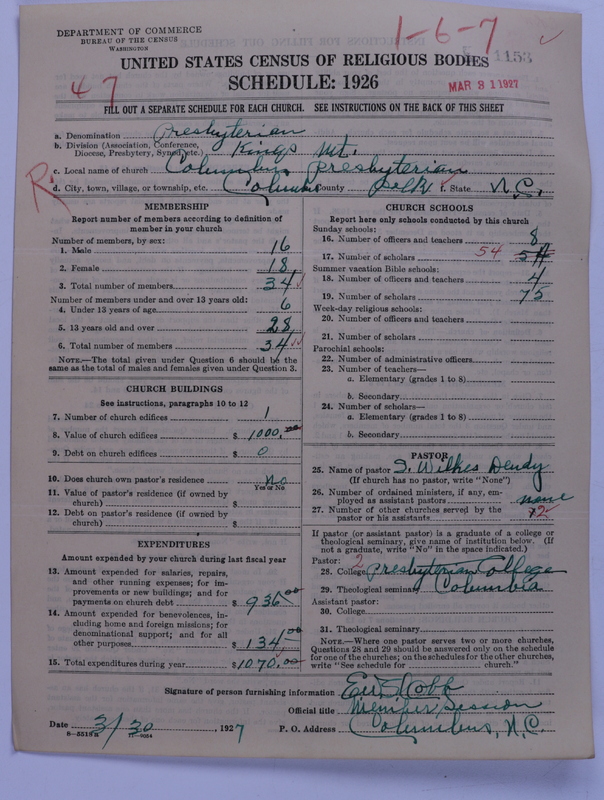 DEPARTMENT OF COMMERCE
BUREAU OF THE CENSUS
WASHINGTON
1-6-7
1153
UNITED STATES CENSUS OF RELIGIOUS BODIES
MAR 31 1927
47
SCHEDULE: 1926
FILL OUT A SEPARATE SCHEDULE FOR EACH CHURCH. SEE INSTRUCTIONS ON THE BACK OF THIS SHEET
a. Denomination Presbyterian
b. Division (Association, Conference, Diocese, Presbytery, Synod, etc.) Kings Mt.
c. Local name of church Columbus Presbyterian
R.
d. City, town, village, or township, etc. Columbus County Polk State N.C.
MEMBERSHIP
Report number of members according to definition of
member in your church
Number of members, by sex:
1. Male 16
2. Female 18
3. Total number of members 34
Number of members under and over 13 years old:
4. Under 13 years of age 6
5. 13 years old and over 28
6. Total number of members 34
NOTE.—The total given under Question 6 should be the
same as the total of males and females given under Question 3.
CHURCH BUILDINGS
See instructions, paragraphs 10 to 12
7. Number of church edifices 1
8. Value of church edifices $ 1000.00
9. Debt on church edifices $ 0
10. Does church own pastor's residence No
Yes or No.
11. Value of pastor's residence (if owned by
church) $
12. Debt on pastor's residence (if owned by
church) $
EXPENDITURES
Amount expended by your church during last fiscal year
13. Amount expended for salaries, repairs,
and other running expenses; for im-
provements or new buildings; and for
payments on church debt $ 936.00
14. Amount expended for benevolences, in-
cluding home and foreign missions; for
denominational support; and for all
other purposes $ 134.00
15. Total expenditures during year $ 1070.00
CHURCH SCHOOLS
Report here only schools conducted by this church
Sunday schools:
16. Number of officers and teachers 8
17. Number of scholars 54
Summer vacation Bible schools:
18. Number of officers and teachers 4
19. Number of scholars 75
Week-day religious schools:
20. Number of officers and teachers
21. Number of scholars
Parochial schools:
22. Number of administrative officers
23. Number of teachers—
a. Elementary (grades 1 to 8)
b. Secondary
24. Number of scholars—
a. Elementary (grades 1 to 8)
b. Secondary
PASTOR
25. Name of pastor Wilkes Dendy
(If church has no pastor, write "None")
26. Number of ordained ministers, if any, em-
ployed as assistant pastors none
27. Number of other churches served by the
pastor or his assistants 2
If pastor (or assistant pastor) is a graduate of a college or
theological seminary, give name of institution below. (If
not a graduate, write "No" in the space indicated.)
Pastor: 2
28. College Presbyterian College
29. Theological seminary Columbia
Assistant pastor:
30. College
31. Theological seminary
NOTE.—Where one pastor serves two or more churches,
Questions 28 and 29 should be answered only on the schedule
for one of the churches; on the schedules for the other churches,
write "See schedule for church."
Signature of person furnishing information Cobb
Official title Member Session
Date 3/30, 1927 P. O. Address Columbus, N.C.
8-5518 B 11-9054